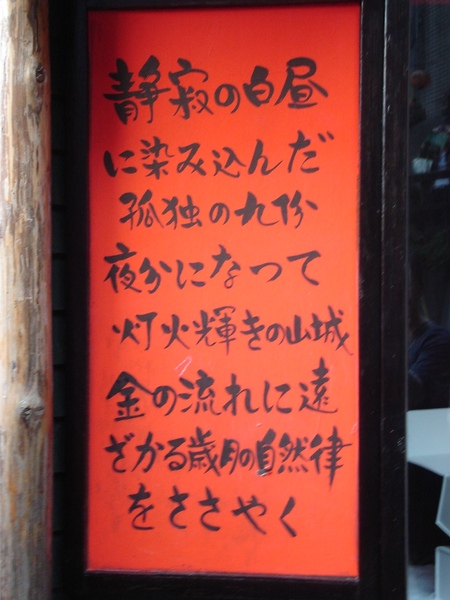 静寂の白昼
に染み込んだ
孤独の九份
夜分になって
灯火輝きの山城
金の流れに遠
ざかる歳月の自然律
をささやく